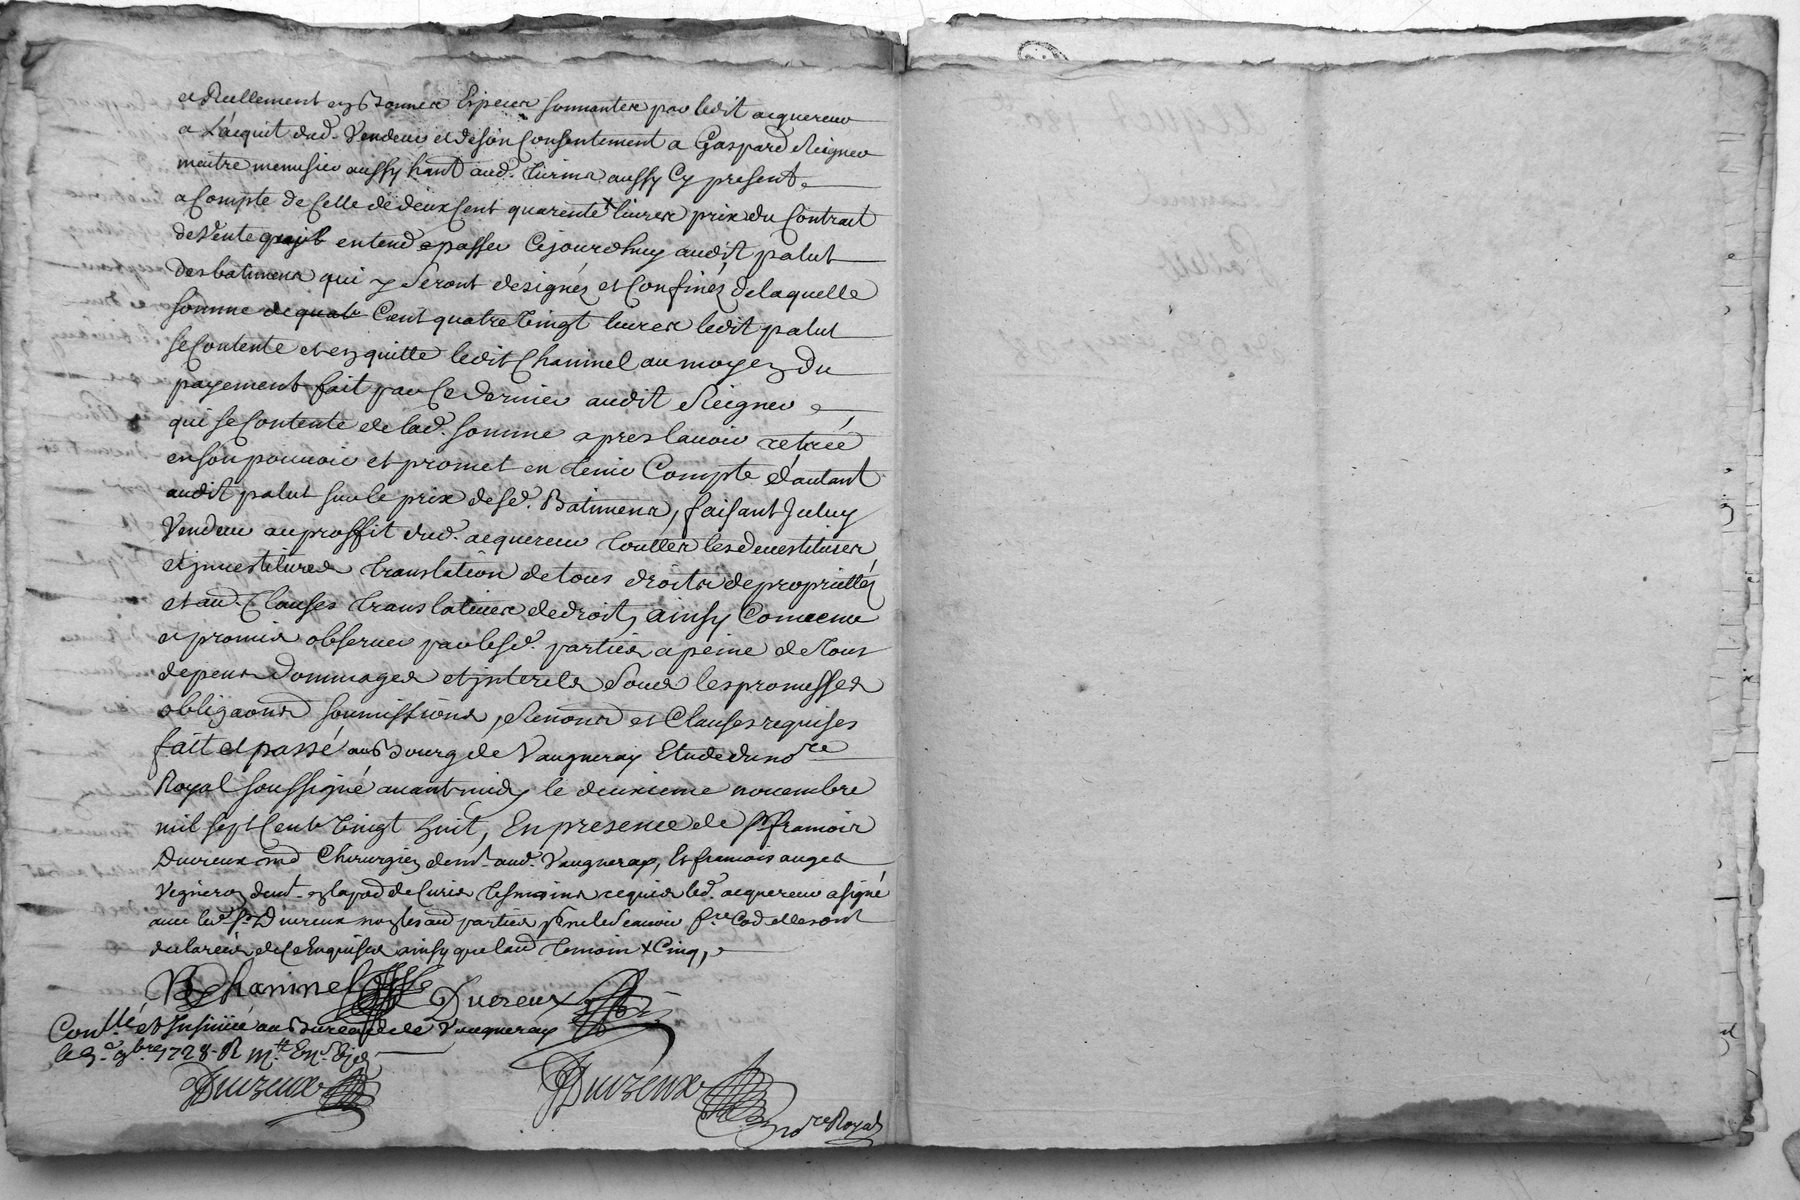 et Reellement en bonnes Especes sonnantes par ledit acquereur
a L'acquit dud. Vendeur et de son Consentement a Gaspard Reigner
maitre menusier aussy hant aud. aussy Cy present
a Compte de Celle de deux Cent quarente livres prix du Contract
de Vente quajl entend passer Cejourdhuy audit palut
des batimens qui y Seront designéz et Confinéz de laquelle
somme de quatr Cent quatre Vingt livres ledit palut
se Contente et en quitte ledit Chaninel au moyen du
payement fait par Ce dernier audit Reigner
qui se Contente de lad. somme apres lavoir retirée
en son pouvoir et promet en tenir Compte d'autant
audit palut sur le prix desd. Batimens, faisant Jceluy
Vendeur au proffit dud. acquereur touttes les devestitures
et jnvestitures translation de tous droits de propriettéz
et au. Clauses translatives de droit, ainsy Convenu
et promis observer par lesd. parties a peine de tous
depens dommages et jnterets Sous les promesses
obligaons soumissions, Renons et Clauses requises
fait et passé au Bourg de Vaugneray Etude du no.re
Royal soussigné avant midy le deuxieme novembre
mil sept Cent Vingt huit, En presence de Sr francois
Duvreux md Chirurgien demt aud. Vaugneray, Et francois auges
Vigneron demt. en la pad de Curis tesmoins requis led. acquereur a signé
avec led. Sr. Duvreux non les au parties pr ne le Scavoir fre Cod elles ont
declarées de Ce Enquises ainsy que laud temoin + Cinq,
Chaninel Duvreux
Conllé et Insinué au Bureau de Vaugneray
le 9bre 1728. R
Duvreux Duvreux
no.re Royal